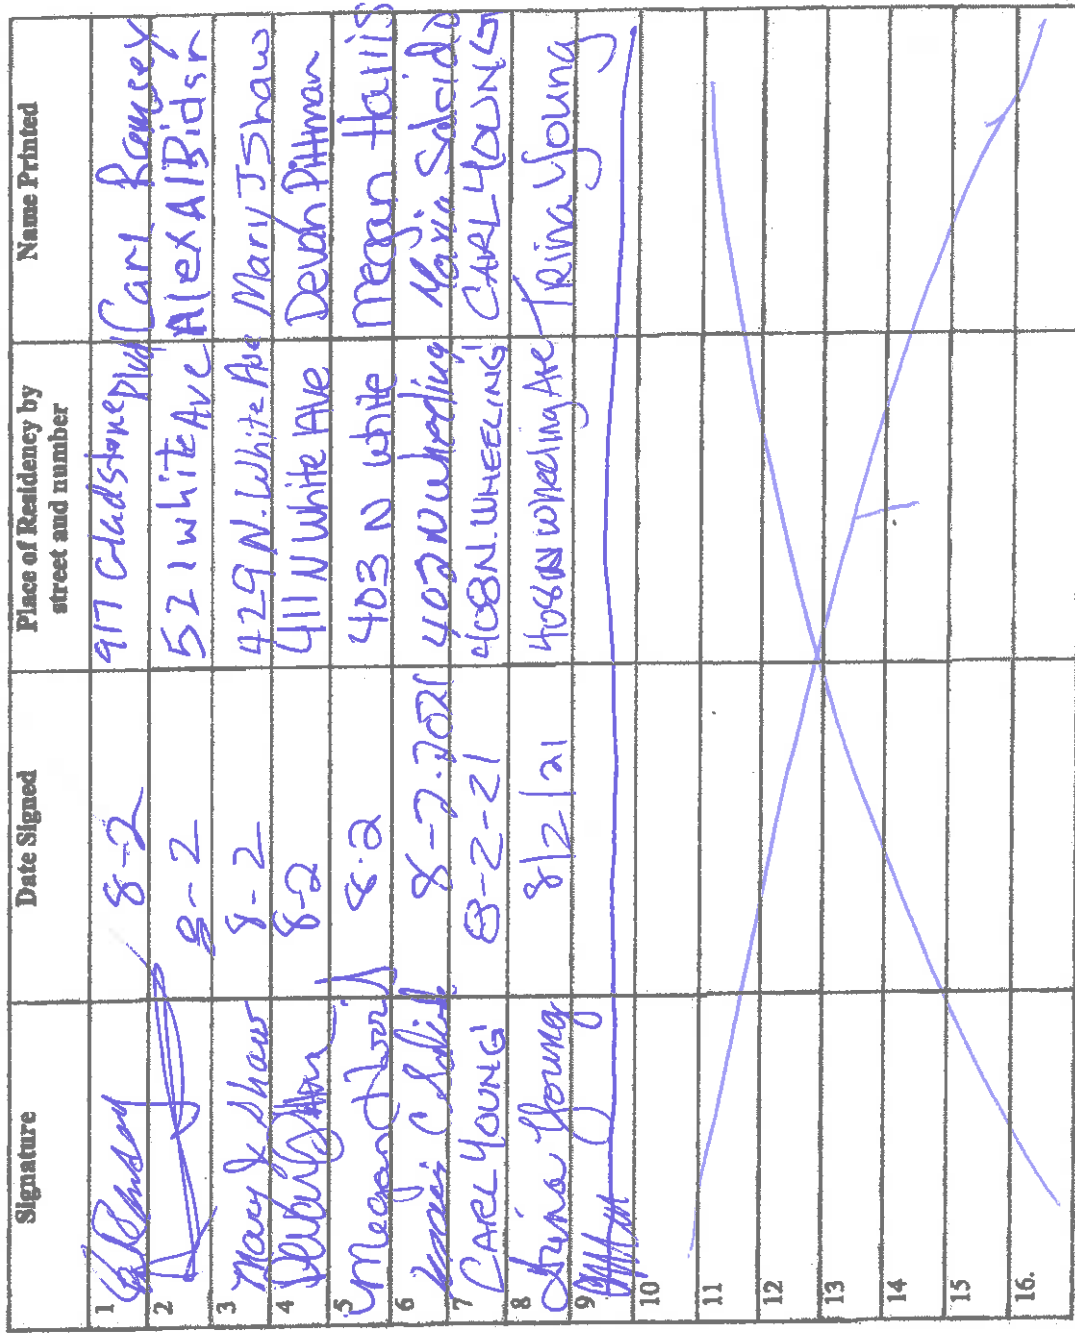 Signature Date Signed Place of Residency by street and number Name Printed
1 8-2 917 Gladstone Blvd Carl Ramsey
2 8-2 521 white Ave Alex AlBidsr
3 Mary J Shaw 8-2 429 N. White Ave Mary J Shaw
4 8-2 411 N White Ave Devan Pittman
5 Megan 8-2 403 N White Megan Harris
6 C Salcido 8-2-2021 402 N Wheeling Salcido
7 CARL YOUNG 8-2-21 408 N. WHEELING CARL YOUNG
8 Trina Young 8/2/21 408 N Wheeling Ave Trina Young
9
10
11
12
13
14
15
16.